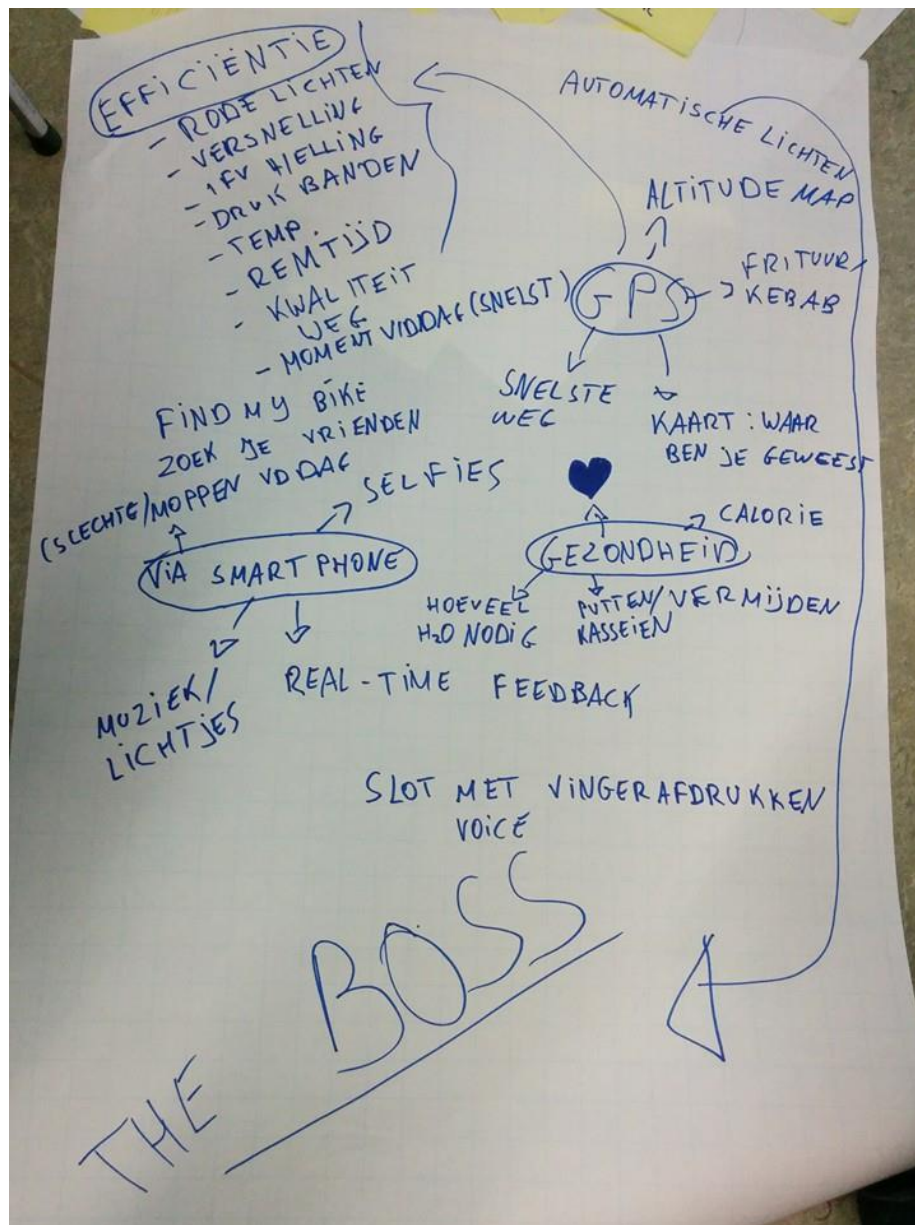 EFFICIËNTIE
- RODE LICHTEN
- VERSNELLING
- IFV HELLING
- DRUK BANDEN
- TEMP.
- REMTIJD
- KWALITEIT
WEG
- MOMENT V/D DAG (SNELST)
AUTOMATISCHE LICHTEN
ALTITUDE MAP
GPS
FRITUUR/
KEBAB
SNELSTE
WEG
KAART: WAAR
BEN JE GEWEEST
FIND MY BIKE
ZOEK JE VRIENDEN
(SLECHTE) MOPPEN VD DAG
SELFIES
VIA SMARTPHONE
MUZIEK/
LICHTJES
REAL-TIME FEEDBACK
GEZONDHEID
CALORIE
HOEVEEL
H2O NODIG
PUTTEN/VERMIJDEN
KASSEIEN
SLOT MET VINGERAFDRUKKEN
VOICE
THE BOSS